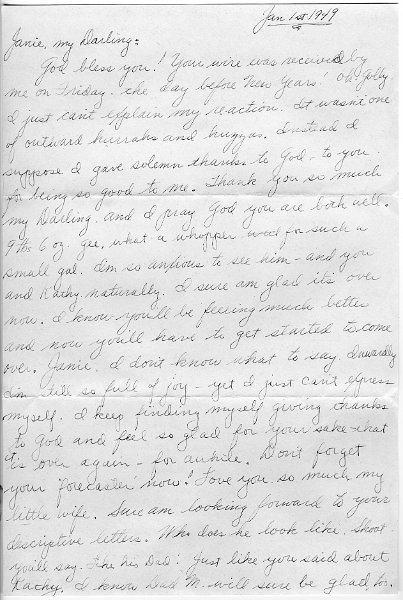 Jan 1st 1949
Janie, my Darling:
God bless you! Your wire was received by
me on Friday - the day before New Years! Oh Jolly
I just can't explain my reaction. It wasn't one
of outward hurrahs and huzzas. Instead I
suppose I gave solemn thanks to God - to you
for being so good to me. Thank you so much
my Darling - and I pray God you are both well.
9 lbs 6 oz. gee, what a whopper weed for such a
small gal. I'm so anxious to see him - and you
and Kathy, naturally. I sure am glad it's over
now. I know you'll be feeling much better
and now you'll have to get started to come
over. Janie, I don't know what to say. Inwardly
I'm still so full of joy - yet I just can't express
myself. I keep finding myself giving thanks
to God and feel so glad for your sake that
'tis over again - for awhile. Don't forget
your 'forecaster' now! Love you so much my
little wife. Sure am looking forward to your
descriptive letters. Who does he look like. Shoot -
you'll say - his Dad! Just like you said about
Kathy. I know Dad M. will sure be glad, for.